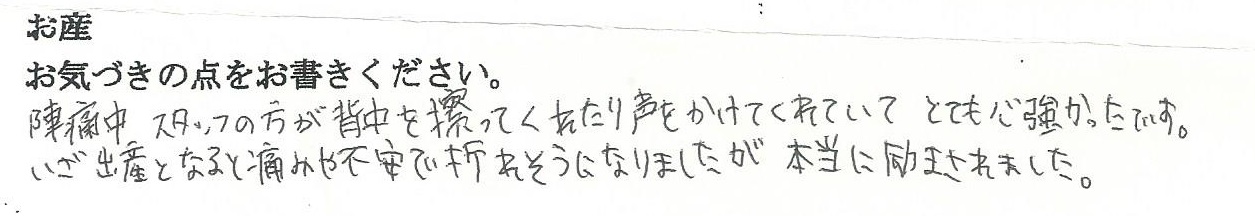 お産
お気づきの点をお書きください。
陣痛中 スタッフの方が背中を擦ってくれたり声をかけてくれていて とても心強かったです。
いざ出産となると痛みや不安で折れそうになりましたが 本当に励まされました。